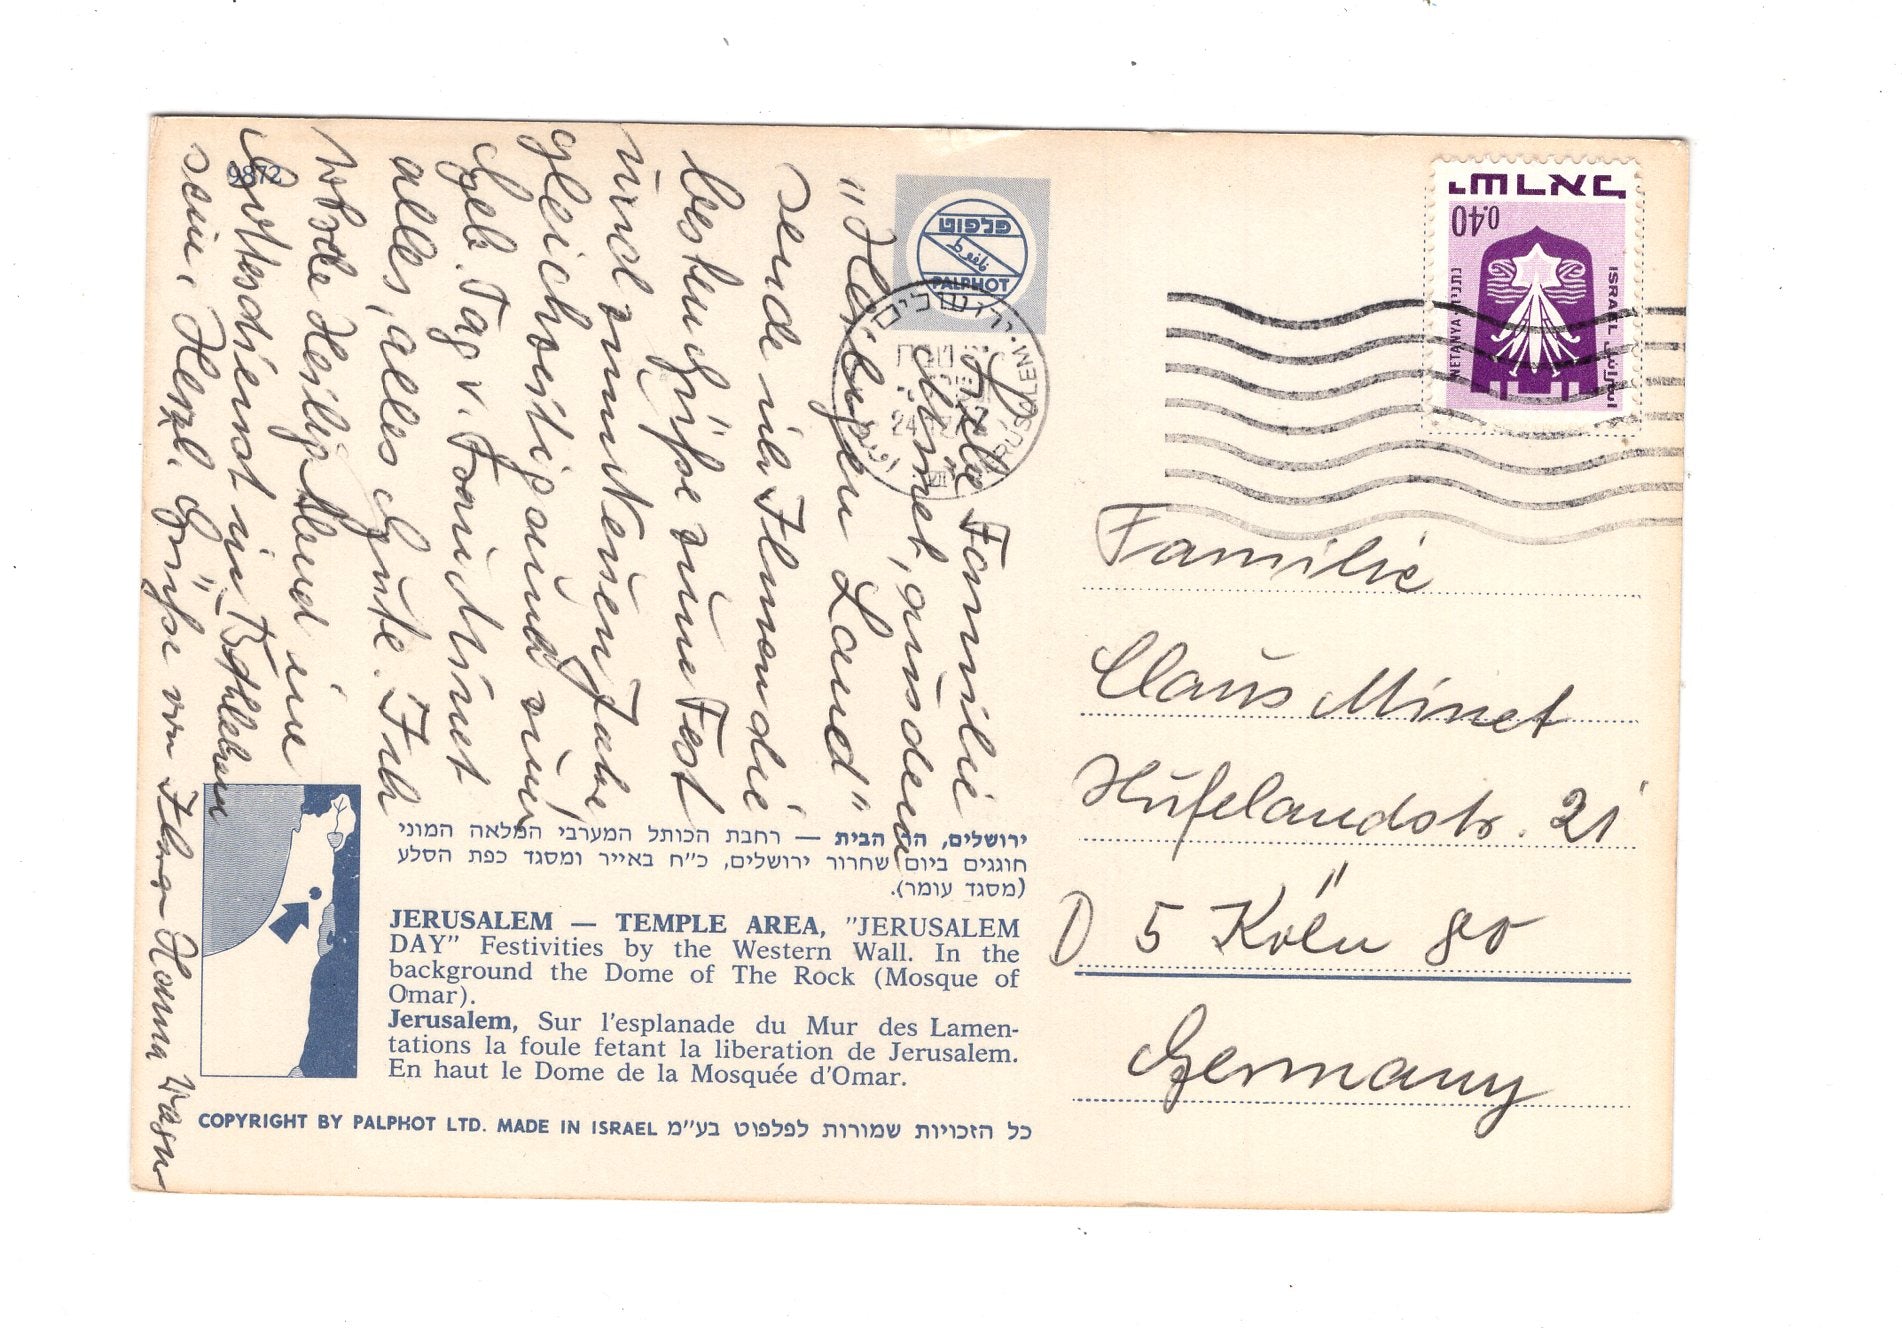 Liebe Familie
Minet, aus dem
"Heiligen Land"
sende ich Ihnen die
besten Grüße zum Fest
und zum Neuen Jahr,
gleichzeitig auch zum
Geb. Tag v. Frau Minet
alles, alles Gute. Ich
werde Heilig Abend im
Gottesdienst in Bethlehem
sein. Herzl. Grüße von Ihrer Hanna
9872
פלפוט
PALPHOT
ירושלים
JERUSALEM
ישראל
0.40
נתניה NETANYA
ISRAEL اسرائيل
Familie
Claus Minet
Hufelandstr. 21
D 5 Köln 80
Germany
ירושלים, הר הבית — רחבת הכותל המערבי המלאה המוני
חוגגים ביום שחרור ירושלים, כ"ח באייר ומסגד כפת הסלע
(מסגד עומר).
JERUSALEM — TEMPLE AREA, "JERUSALEM
DAY" Festivities by the Western Wall. In the
background the Dome of The Rock (Mosque of
Omar).
Jerusalem, Sur l'esplanade du Mur des Lamen-
tations la foule fetant la liberation de Jerusalem.
En haut le Dome de la Mosquée d'Omar.
COPYRIGHT BY PALPHOT LTD. MADE IN ISRAEL כל הזכויות שמורות לפלפוט בע"מ